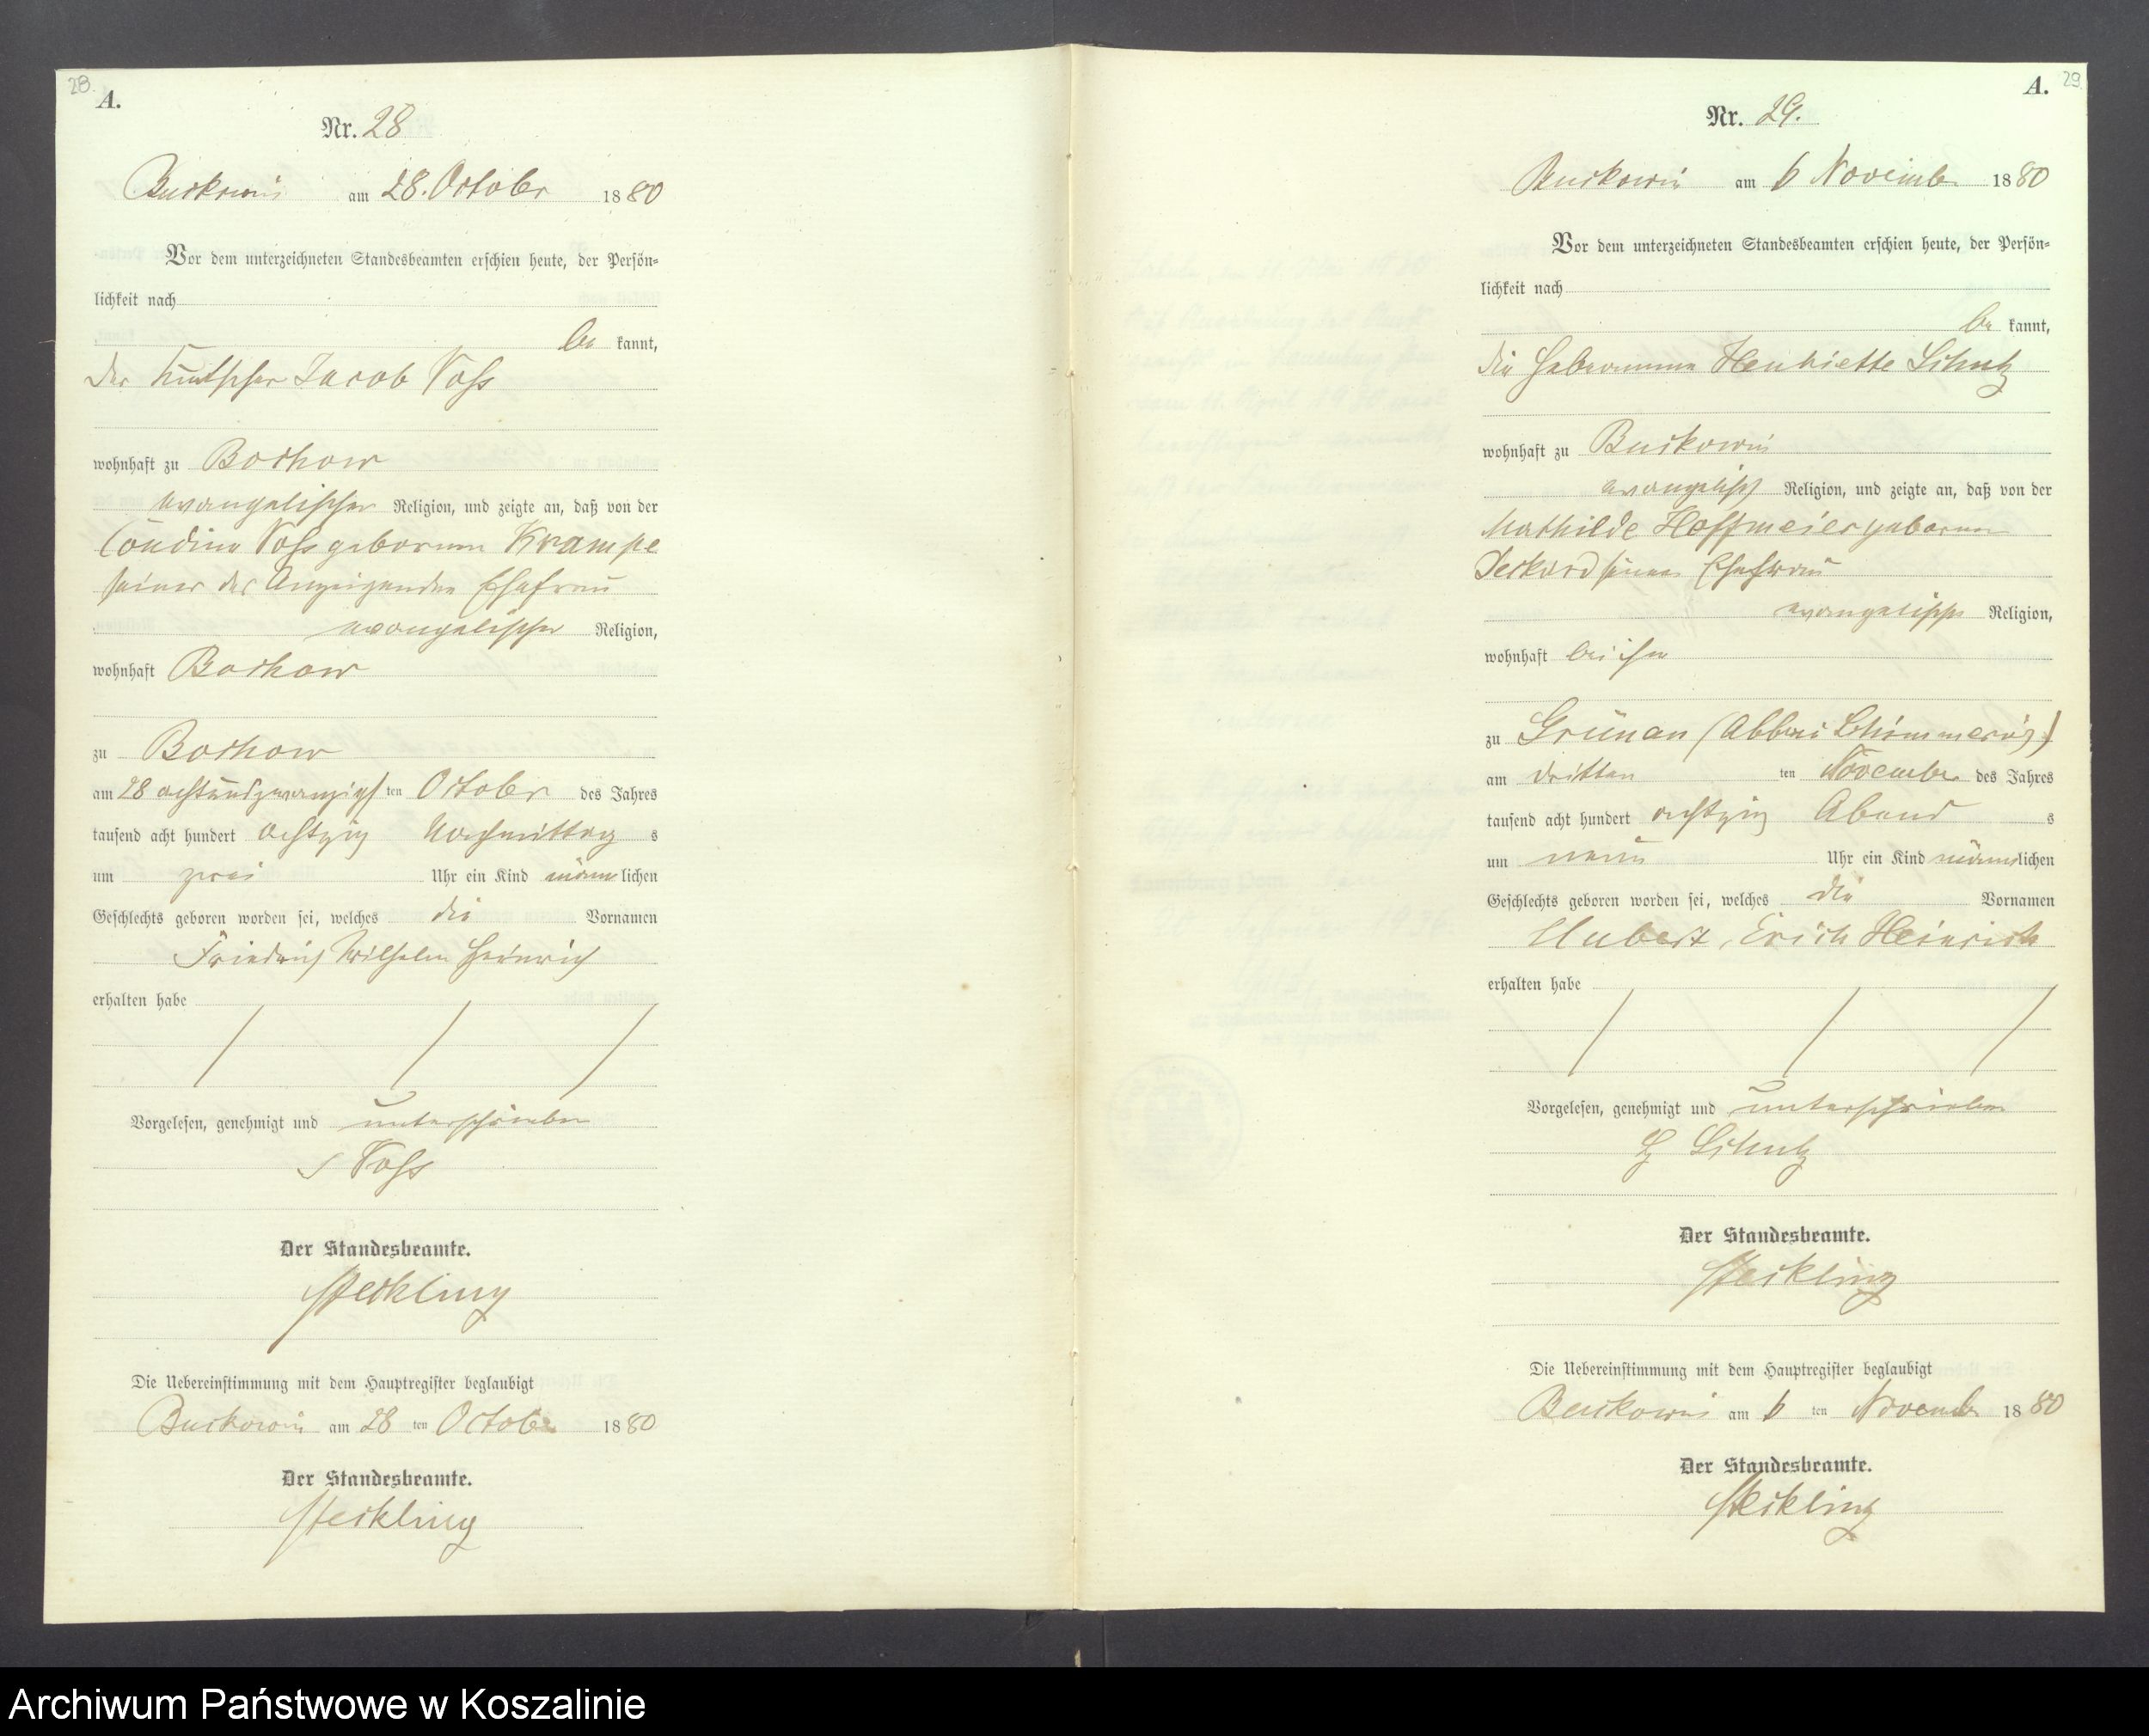 28.
A.
Nr. 28
Buckowin am 28. October 1880
Vor dem unterzeichneten Standesbeamten erschien heute, der Persön-
lichkeit nach
be kannt,
der Kutscher Jacob Voss
wohnhaft zu Bochow
evangelischer Religion, und zeigte an, daß von der
Voss geborenen Krampe
seiner des Anzeigenden Ehefrau
evangelischer Religion,
wohnhaft Bochow
zu Bochow
am 28 achtundzwanzigsten October des Jahres
tausend acht hundert achtzig Nachmittag s
um zwei Uhr ein Kind männlichen
Geschlechts geboren worden sei, welches die Vornamen
Friedrich Wilhelm Heinrich
erhalten habe
Vorgelesen, genehmigt und unterschrieben
J Voss
Der Standesbeamte.
Meckling
Die Uebereinstimmung mit dem Hauptregister beglaubigt
Buckowin am 28 ten October 1880
Der Standesbeamte.
Meckling
A. 29
Nr. 29.
Buckowin am 6 November 1880
Vor dem unterzeichneten Standesbeamten erschien heute, der Persön-
lichkeit nach
be kannt,
die Hebeamme Henriette Schutz
wohnhaft zu Buckowin
evangelisch Religion, und zeigte an, daß von der
Mathilde Hoffmeier geborenen
Ehefrau
evangelische Religion,
wohnhaft bei ihm
zu Grünau
am dritten ten November des Jahres
tausend acht hundert achtzig Abend s
um neun Uhr ein Kind männlichen
Geschlechts geboren worden sei, welches die Vornamen
Hubert, Erich Heinrich
erhalten habe
Vorgelesen, genehmigt und unterschrieben
H Schutz
Der Standesbeamte.
Meckling
Die Uebereinstimmung mit dem Hauptregister beglaubigt
Buckowin am 6 ten November 1880
Der Standesbeamte.
Meckling
Archiwum Państwowe w Koszalinie